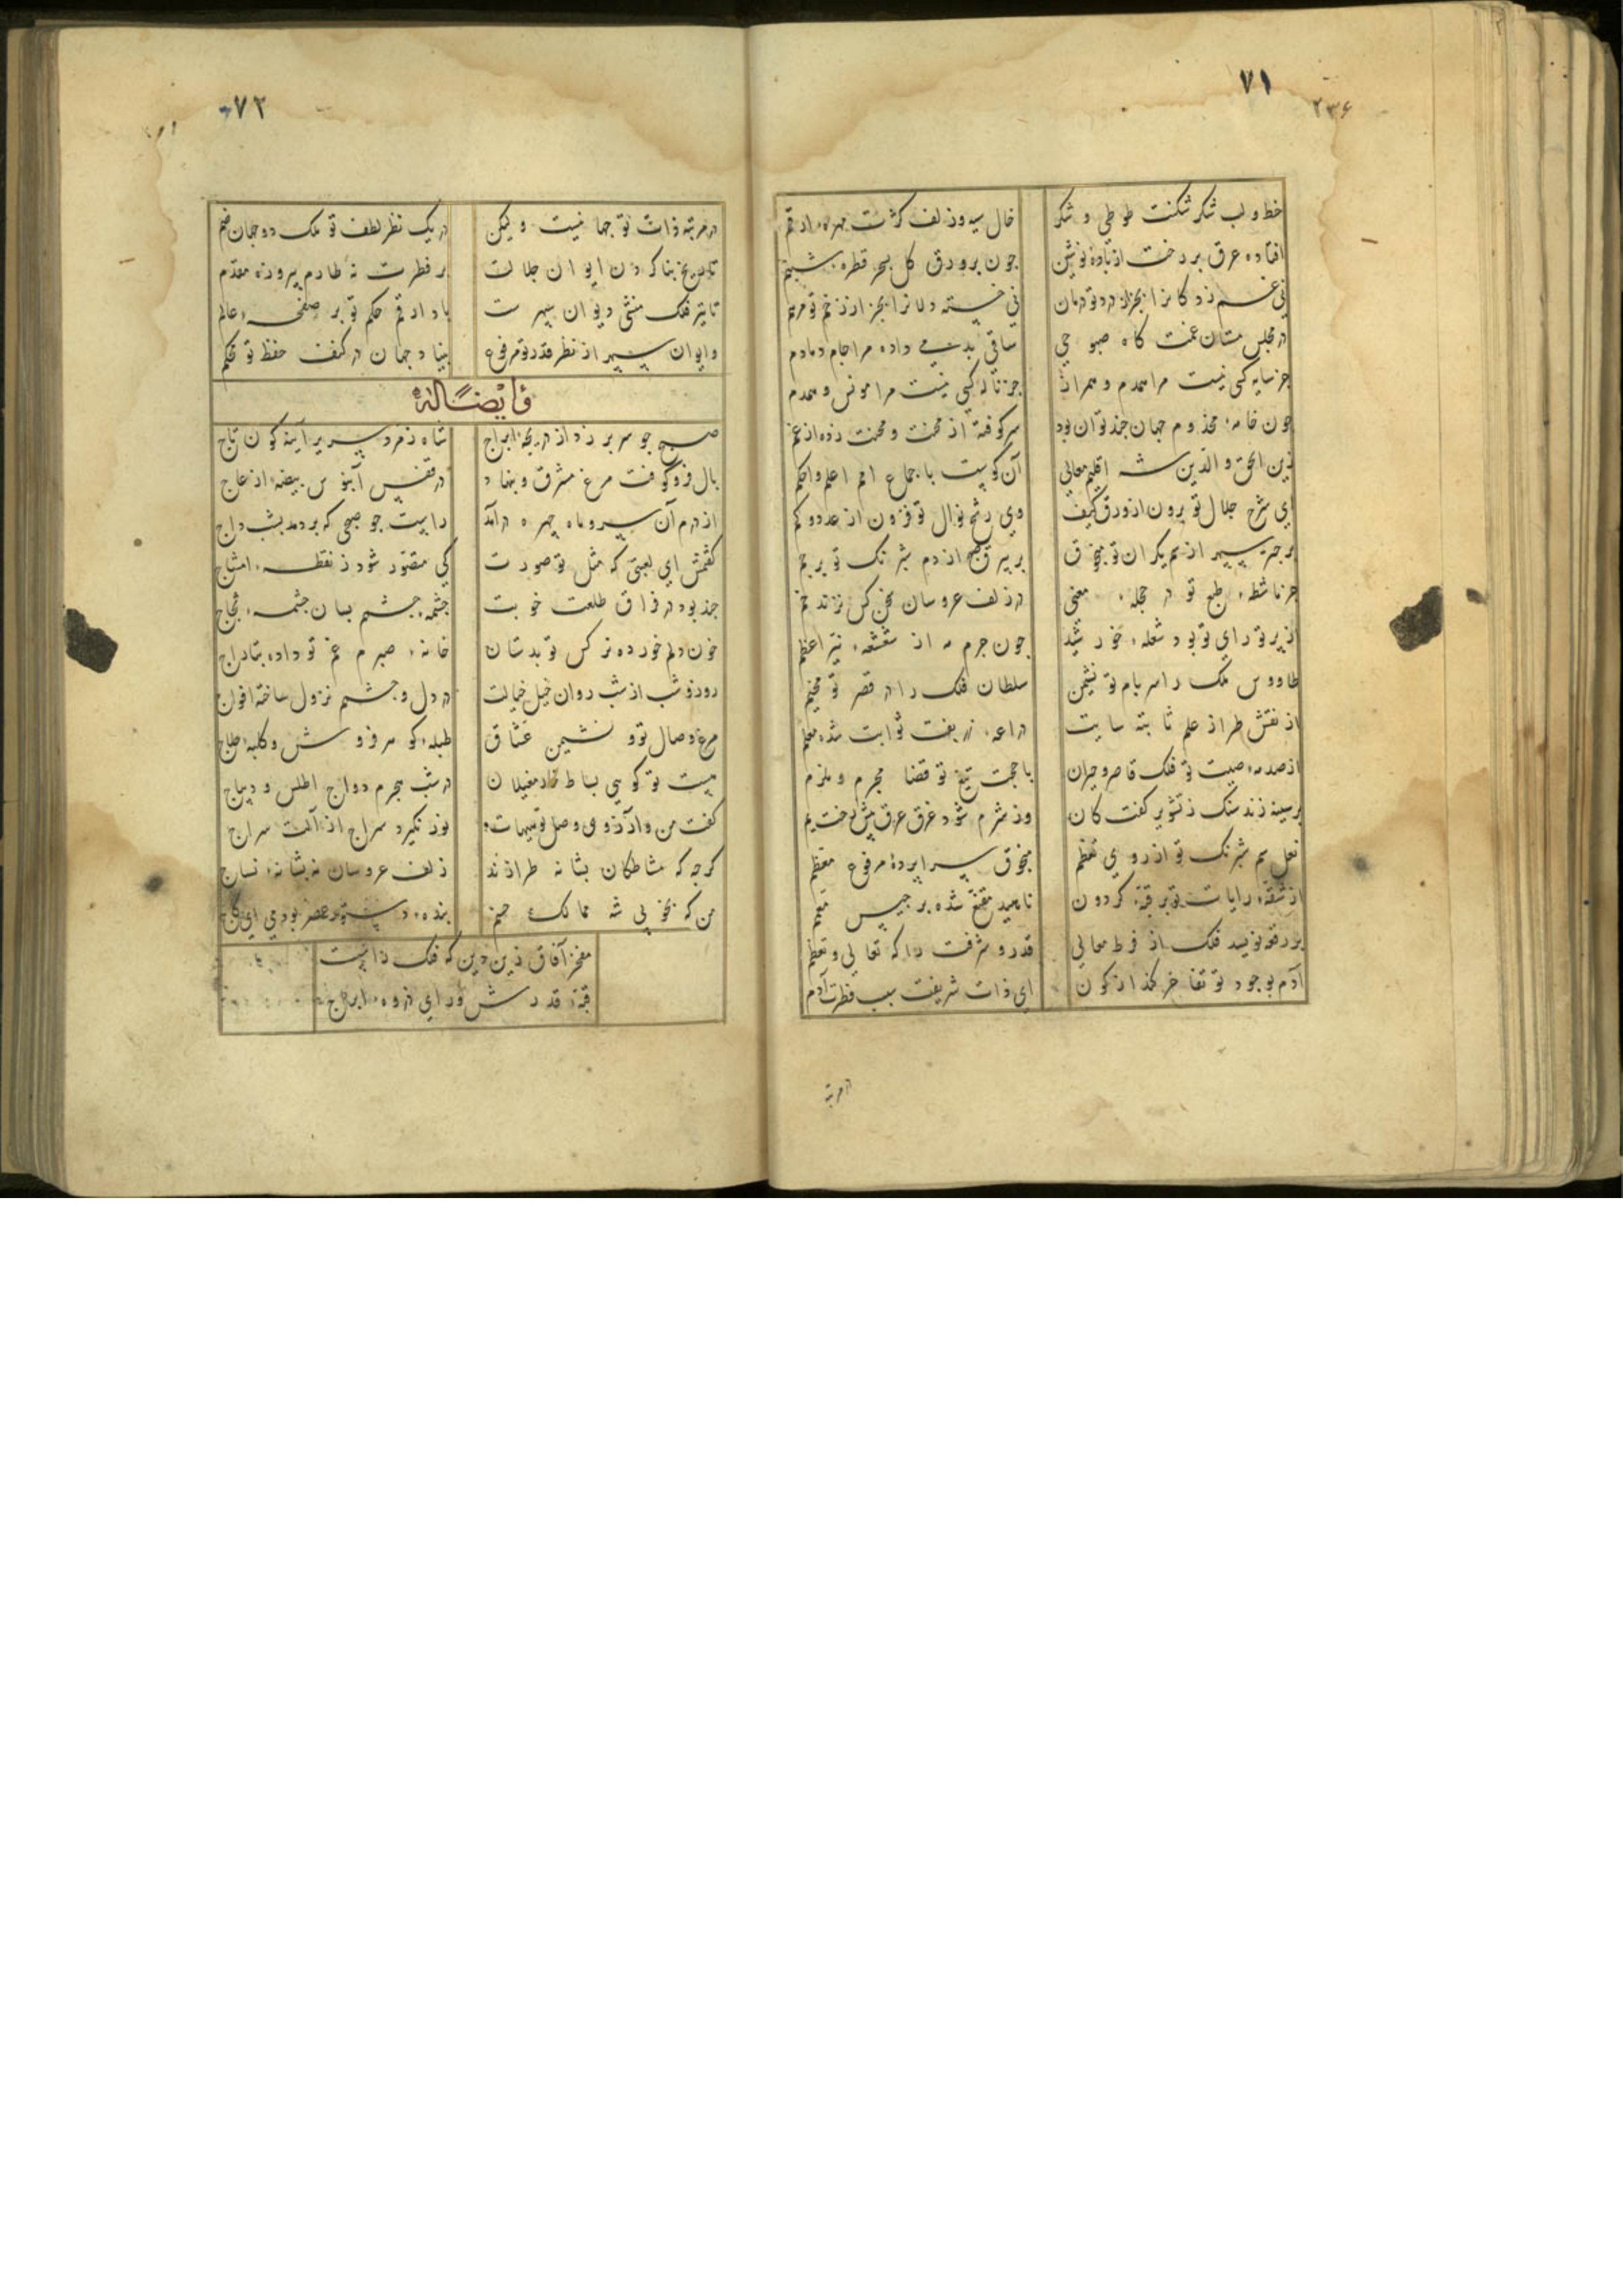 ۷۱
۲۳۶
خط و لب شکر شکنت طوطی و شکر
خال سیه و زلف کژت مهره ارقم
افتاده عرق بر رخت از بادهٔ نوشین
چون بر ورق گل بسحر قطره شبنم
نی غم زدکانرا بجز از درد تو درمان
نی خسته دلانرا بجز از زخم تو مرهم
در مجلس مستان غمت گاه صبوحی
ساقی بدیت می داده مرا جام دمادم
جز سایه کسی نیست مرا همدم و همراز
جز ناله کسی نیست مرا مونس و همدم
چون خامه مخدوم جهان چند توان بود
سرکوفته از محنت و محنت زده از غم
زین الحق والدین شه اقلیم معالی
آن کوست باجماع امم اعلم و احکم
ای شرح جلال تو برون از ورق کیف
وی رشح نوال تو فزون از عدد و کم
بر چتر سپهر از سم یکران تو منجوق
بر بیرق صبح از دم شبرنگ تو پرچم
جز ماشطه طبع تو در حجله معنی
در زلف عروسان سخن کس نزند خم
از پرتو رای تو بود شعله خورشید
چون جرم مه از شعشعه نیر اعظم
طاووس ملک را سر بام تو نشیمن
سلطان فلک را در قصر تو مخیم
از نقش طراز علم ثابته سایت
دراعه زربفت ثوابت شده معلم
از صدمه صیت تو فلک قاصر و حیران
با حجت تیغ تو قضا مجرم و ملزم
بر سینه زند سنگ ز تشویر کفت کان
وز شرم شود غرق عرق پیش دلت یم
نعل سم شبرنگ تو از روی تعظم
منجوق سراپردهٔ مرفوع معظم
از شقه رایات تو بر قبه گردون
ناهید مقنع شده برجیس معمم
بر رقعه نویسد فلک از فرط معالی
قدر و شرفت را که تعالی و تعظم
آدم بوجود تو تفاخر کند از کون
ای ذات شریفت سبب فطرت آدم
در مرتبه
۷۲
در مرتبه ذات تو جهانیست ولیکن
در یک نظر لطف تو ملک دو جهان ضم
تاریخ بنا کردن ایوان جلالت
بر فطرت نه طارم پیروزه مقدم
تا تیر فلک منشی دیوان سپهرست
بادا رقم حکم تو بر صفحه عالم
و ایوان سپهر از نظر قدر تو مرفوع
بنیاد جهان در کنف حفظ تو محکم
وأیضًا له
صبح چو سر بر زد از دریچه ابراج
شاه زمرد سریر آینه گون تاج
بال فرو کوفت مرغ مشرق و بنهاد
در قفس آبنوس بیضه از عاج
از درم آن سرو ماه چهره درآمد
راست چو صبحی که بردمد بشب داج
گفتمش ای لعبتی که مثل تو صورت
کی متصور شود ز نقطه امشاج
چند بود در فراق طلعت خوبت
چشمه چشمم بسان چشمه ثجاج
خون دلم خورده نرکس تو بدستان
خانه صبرم غم تو داده بتاراج
روز و شب از شب روان خیل خیالت
در دل و چشمم نزول ساخته افواج
مرغ وصال تو و نشیمن عشاق
طبله گوهر فروش و کلبه حلاج
هست تو گویی بساط خار مغیلان
در شب هجرم دواج اطلس و دیباج
گفت من و آرزوی وصل تو هیهات
نور نگیرد سراج از آلت سراج
گرچه که مشاطگان بشانه طرازند
زلف عروسان نه بشانه نساج
من که بخوبی شه ممالک حسنم
بنده دستور عصر بودی ای کاج
مفخر آفاق زین دین که فلک راست
قبه قدرش ورای ذروه ابراج